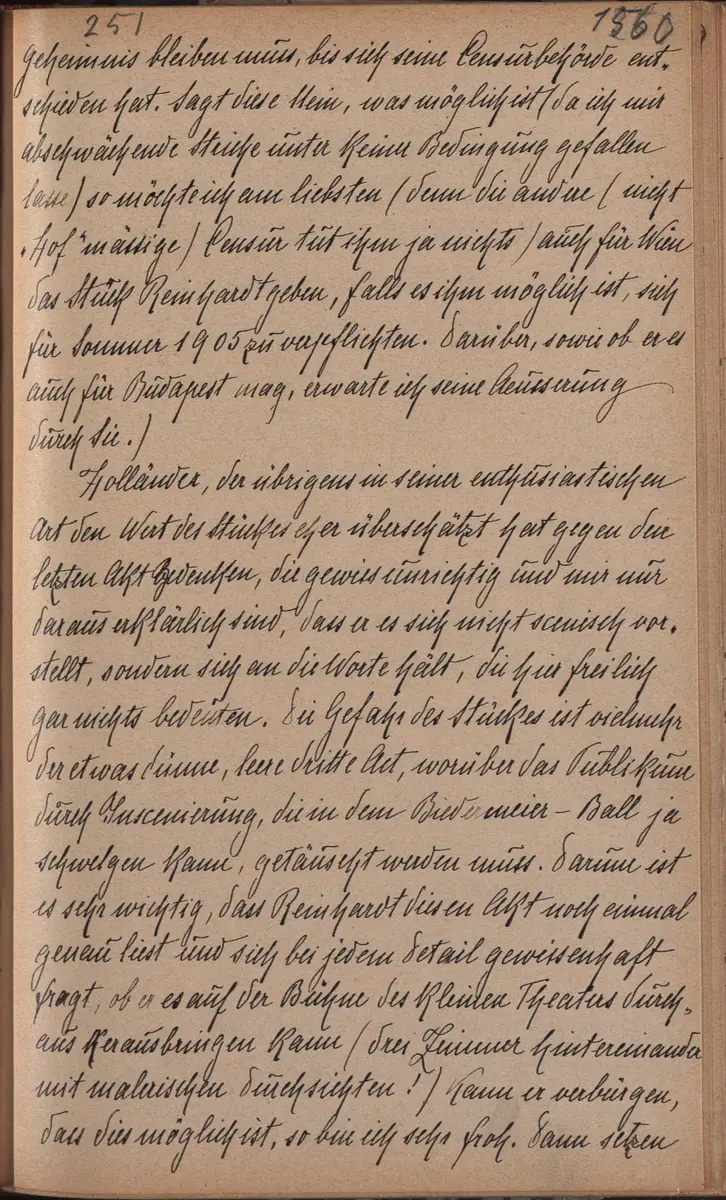 251 1360
geheimnis bleiben muss, bis sich seine Censurbehörde ent-
schieden hat. Sagt diese Nein, was möglich ist (da ich mir
abschwächende Striche unter keiner Bedingung gefallen
lasse) so möchte ich am liebsten (denn die andere (nicht
"Hof"mässige) Censur tut ihm ja nichts) auch für Wien
das Stück Reinhardt geben, falls es ihm möglich ist, sich
für Sommer 1905 zu verpflichten. Darüber, sowie ob er es
auch für Budapest mag, erwarte ich seine Aeusserung
durch Sie.)
Holländer, der übrigens in seiner enthusiastischen
Art den Wert des Stückes eher überschätzt hat gegen den
letzten Akt Bedenken, die gewiss unrichtig und mir nur
daraus erklärlich sind, dass er es sich nicht scenisch vor-
stellt, sondern sich an die Worte hält, die hier freilich
gar nichts bedeuten. Die Gefahr des Stückes ist vielmehr
der etwas dünne, leere dritte Act, worüber das Publikum
durch Inscenierung, die in dem Biedermeier-Ball ja
schwelgen kann, getäuscht werden muss. Darum ist
es sehr wichtig, dass Reinhardt diesen Akt noch einmal
genau liest und sich bei jedem Detail gewissenhaft
fragt, ob er es auf der Bühne des Kleinen Theaters durch-
aus herausbringen kann (drei Zimmer hintereinander
mit malerischen Durchsichten!) Kann er verbürgen,
dass dies möglich ist, so bin ich sehr froh. Dann setzen